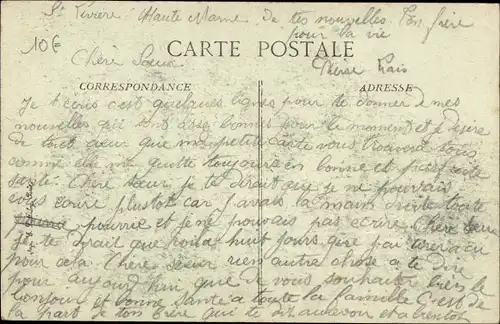 St Livière Haute Marne De tes nouvelles Ton frère
pour la vie
10€
CARTE POSTALE
Chère Soeur
CORRESPONDANCE
ADRESSE
Je t'écris c'est quelques lignes pour te donner de mes
nouvelles qui sont assez bonnes pour le moment et je désire
de tout coeur que ma petite carte vous trouve tous
comme elle me quitte toujours en bonne et parfaite
santé. Chère soeur je te dirait que je ne pouvais
vous écrire plustot car j'avais la main droite toute
pourrie et je ne pouvais pas écrire Chère soeur
je te dirait que voila huit jours que j'ai
pour cela. Chère soeur rien autre chose a te dire
pour aujourd'hui que de vous souhaiter bien le
bonjour et bonne santé a toute la famille C'est de
la part de ton frère qui te dit aurevoir et a bientot